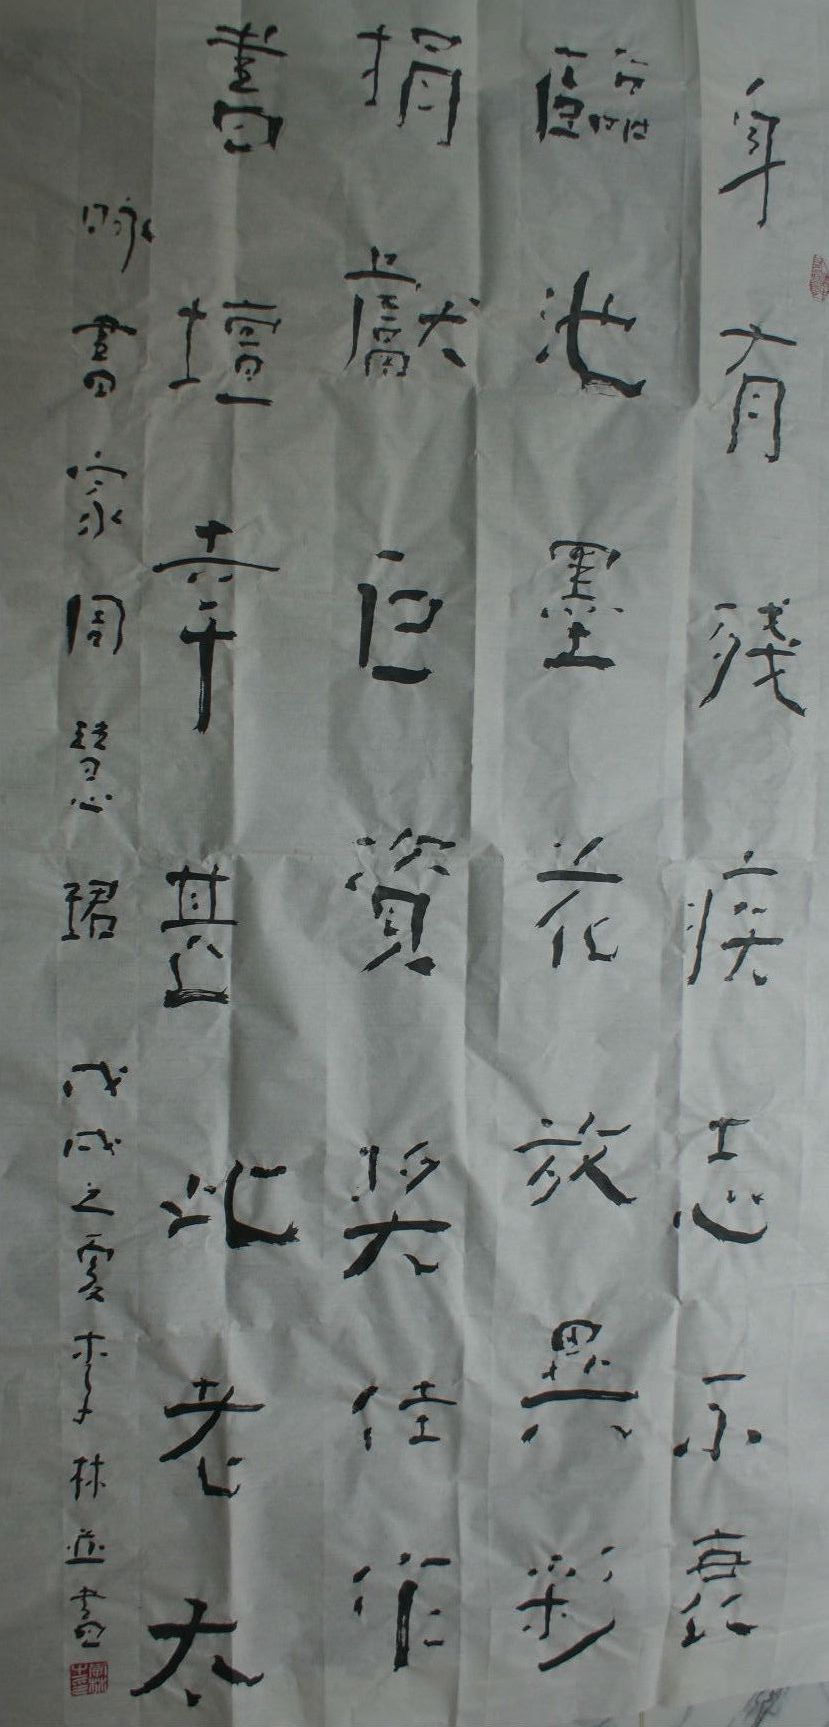 身有殘疾志不衰
臨池墨花放異彩
捐獻巨資奖佳作
書壇幸甚此老太
咏書家周慧珺 戊戌之夏李林並書